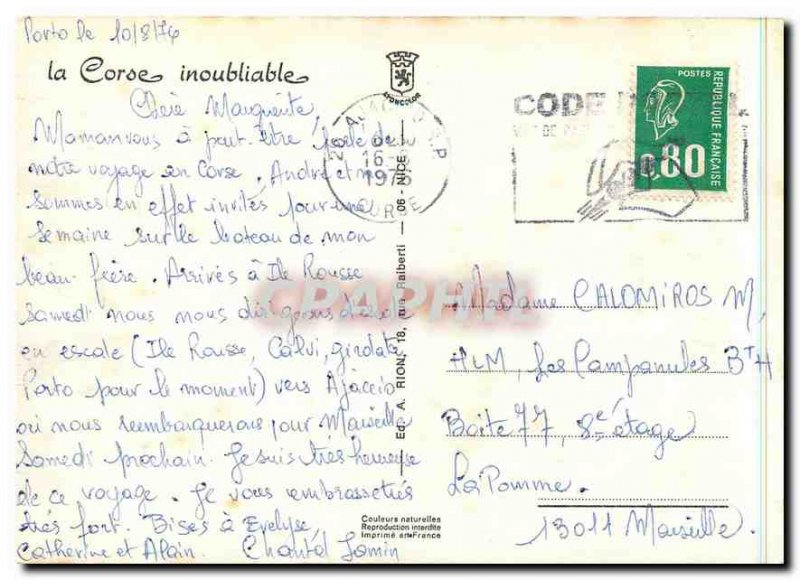 Porto le 10/8/76
la Corse inoubliable
LYONCOLOR
Chère Marguerite,
Maman vous a peut être parlé de
notre voyage en Corse. André et moi
sommes en effet invités pour une
semaine sur le bateau de mon
beau-frère. Arrivés à Ile Rousse
samedi nous nous dirigeons d'escale
en escale (Ile Rousse, Calvi, girolata
Porto pour le moment) vers Ajaccio
où nous rembarquerons pour Marseille
Samedi prochain. Je suis très heureuse
de ce voyage. Je vous embrasse très
très fort. Bises à Evelyse,
Catherine et Alain. Chantal
Ed. A. RION, 18, rue Raiberti — 06 - NICE
Couleurs naturelles
Reproduction interdite
Imprimé en France
16
1976
CORSE
CODE
POSTES
REPUBLIQUE FRANÇAISE
0.80
Madame CALOMIROS M,
HLM, Les Campanules BTH
Boite 77, 8e étage
La Pomme.
13011 Marseille.
CPAPHIL